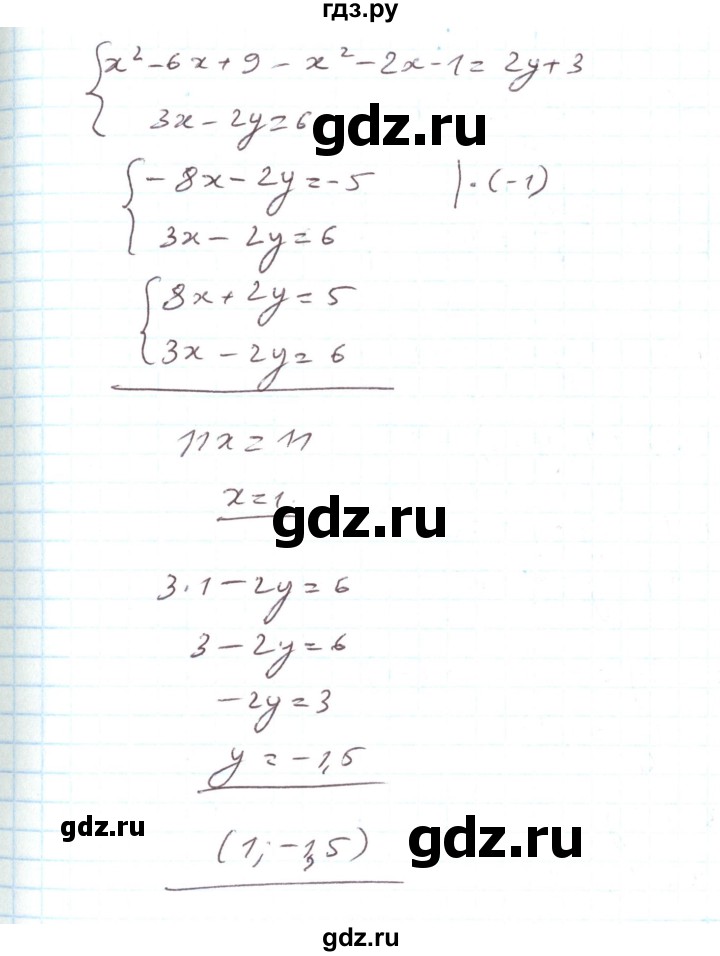 гдз.ру
x² - 6x + 9 - x² - 2x - 1 = 2y + 3
3x - 2y = 6
gdz.ru
- 8x - 2y = -5 | · (-1)
3x - 2y = 6
8x + 2y = 5
3x - 2y = 6
11x = 11
x = 1
gdz.ru
3 · 1 - 2y = 6
3 - 2y = 6
-2y = 3
y = -1,5
gdz.ru
(1; -1,5)
gdz.ru
gdz.ru